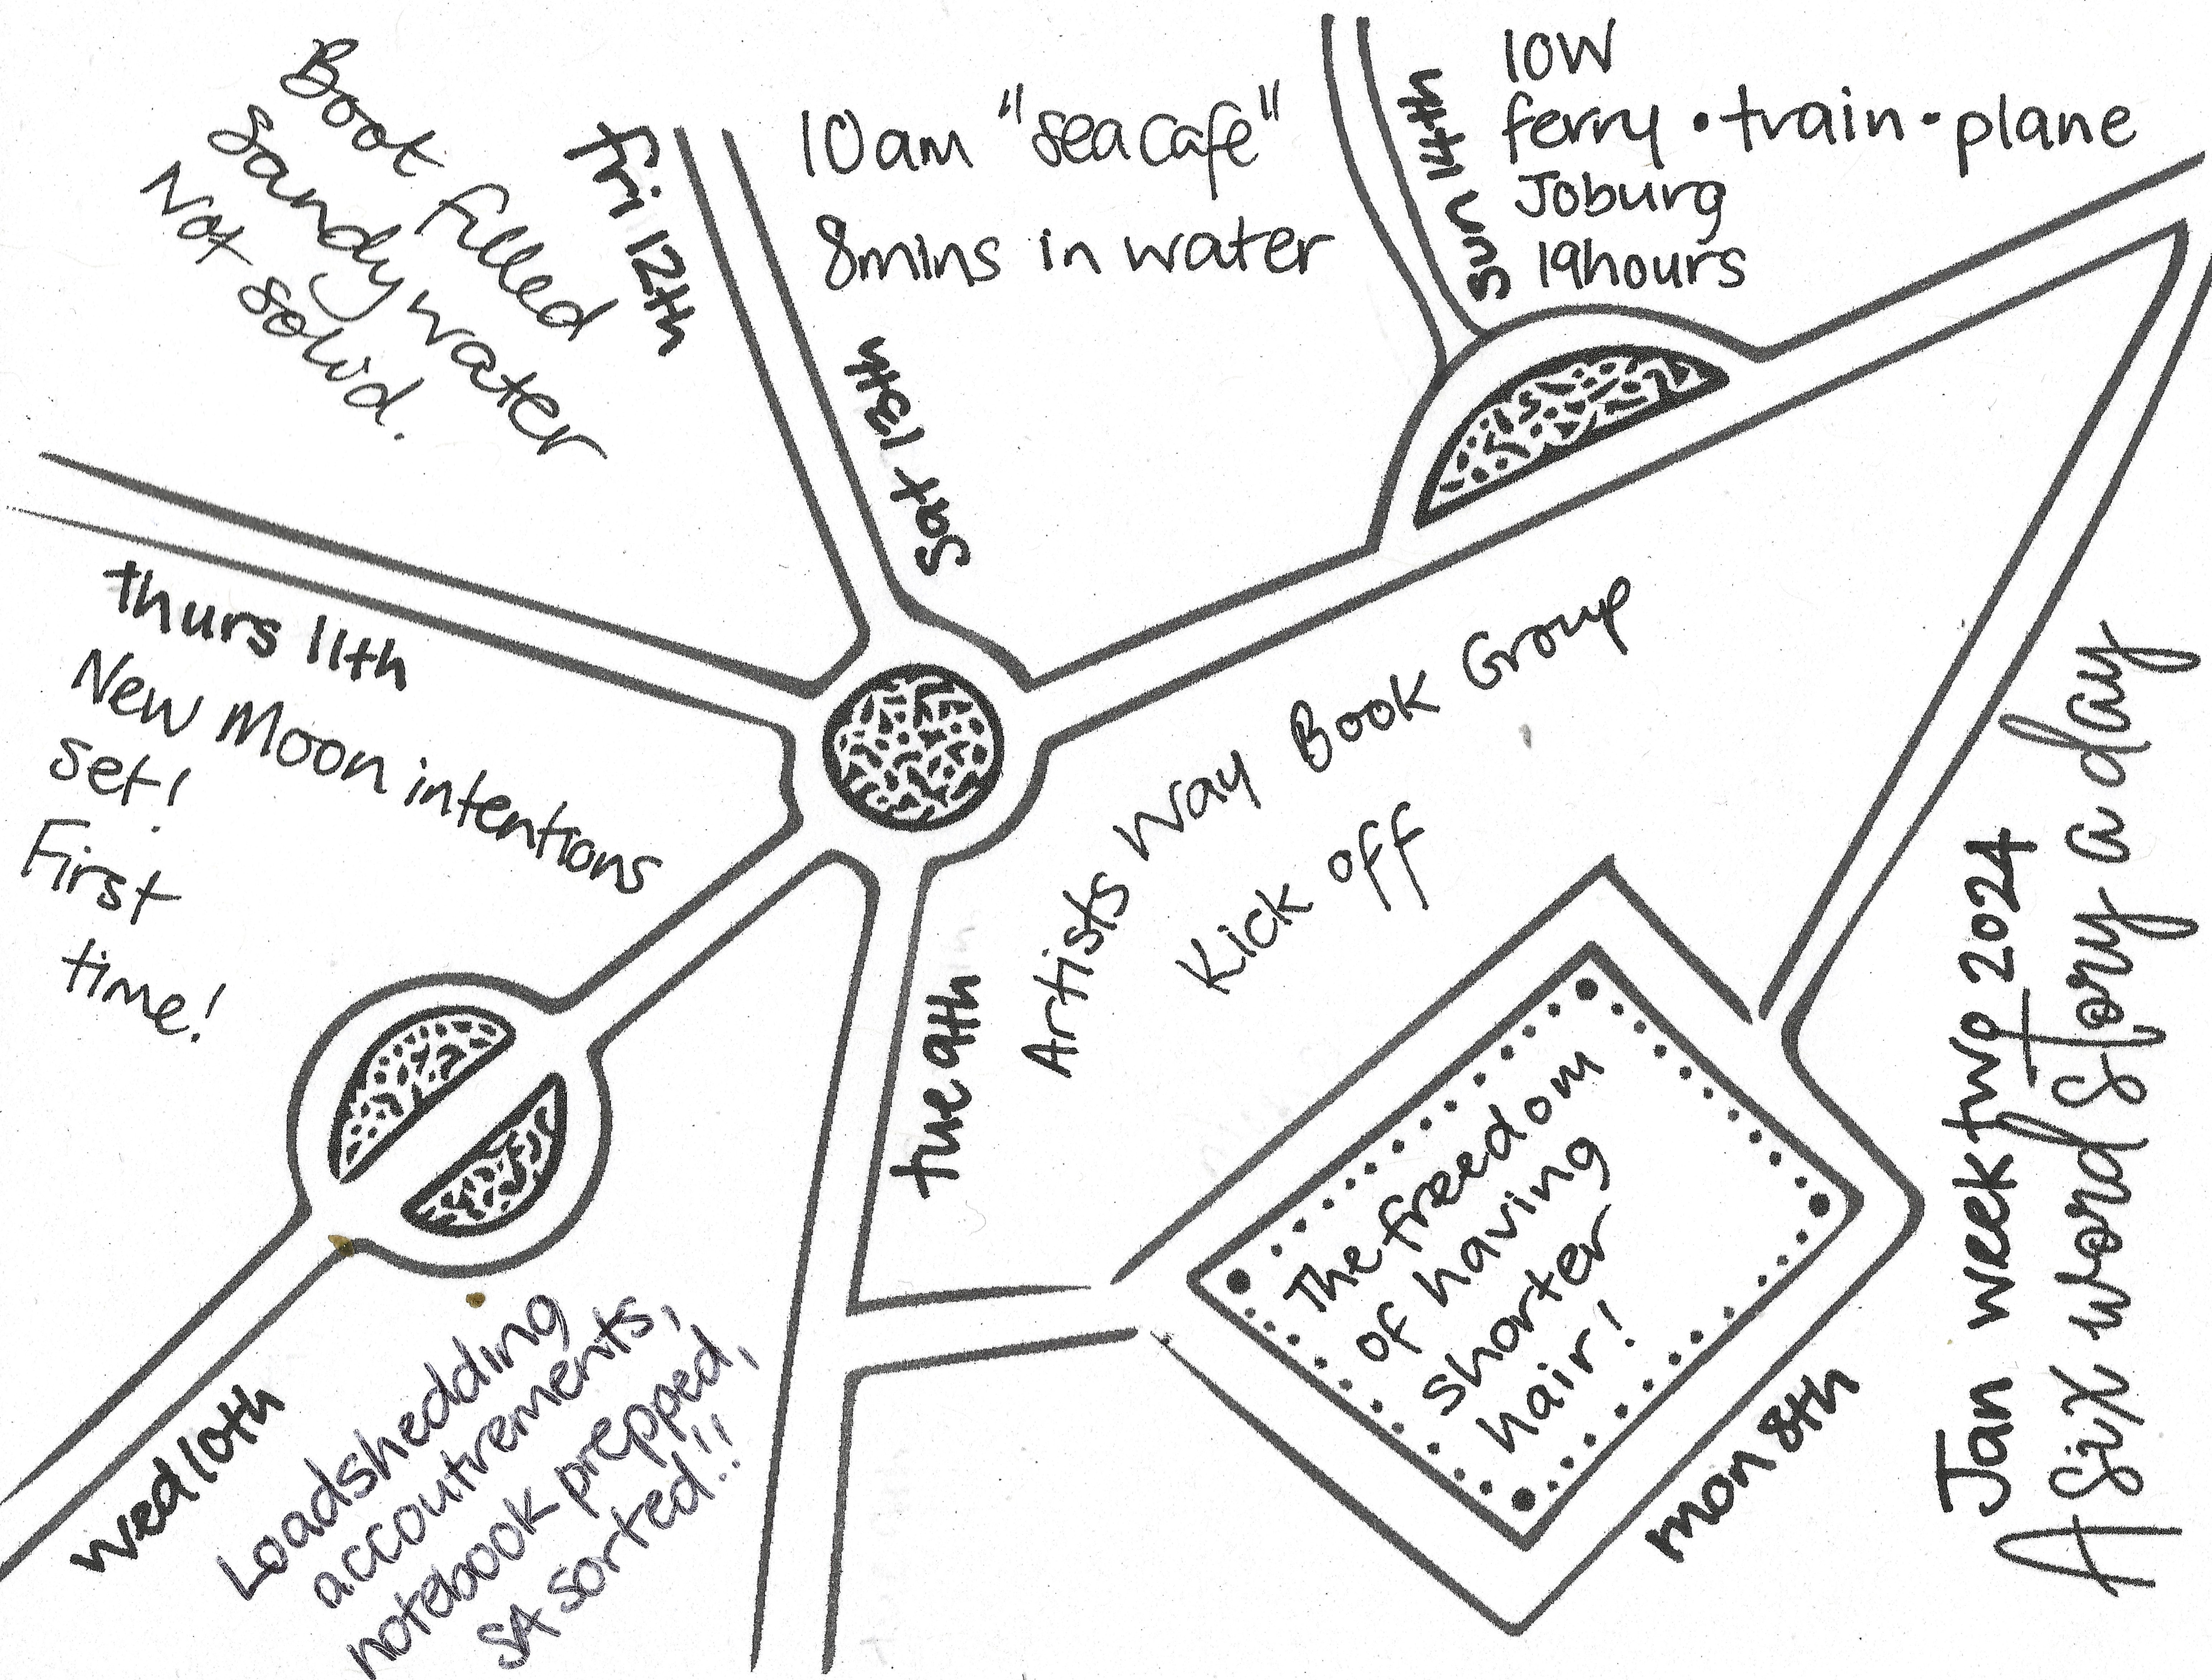 Jan week two 2024
A six word story a day
mon 8th
The freedom
of having
shorter
hair!
tue 9th
Artists Way Book Group
Kick off
wed 10th
Loadshedding
accoutrements,
notebook prepped,
SA sorted!!
thurs 11th
New Moon intentions
set!
First
time!
fri 12th
Boot filled
sandy water
Not solid.
Sat 13th
10am "sea cafe"
8mins in water
sun 14th
IOW
ferry • train • plane
Joburg
19hours